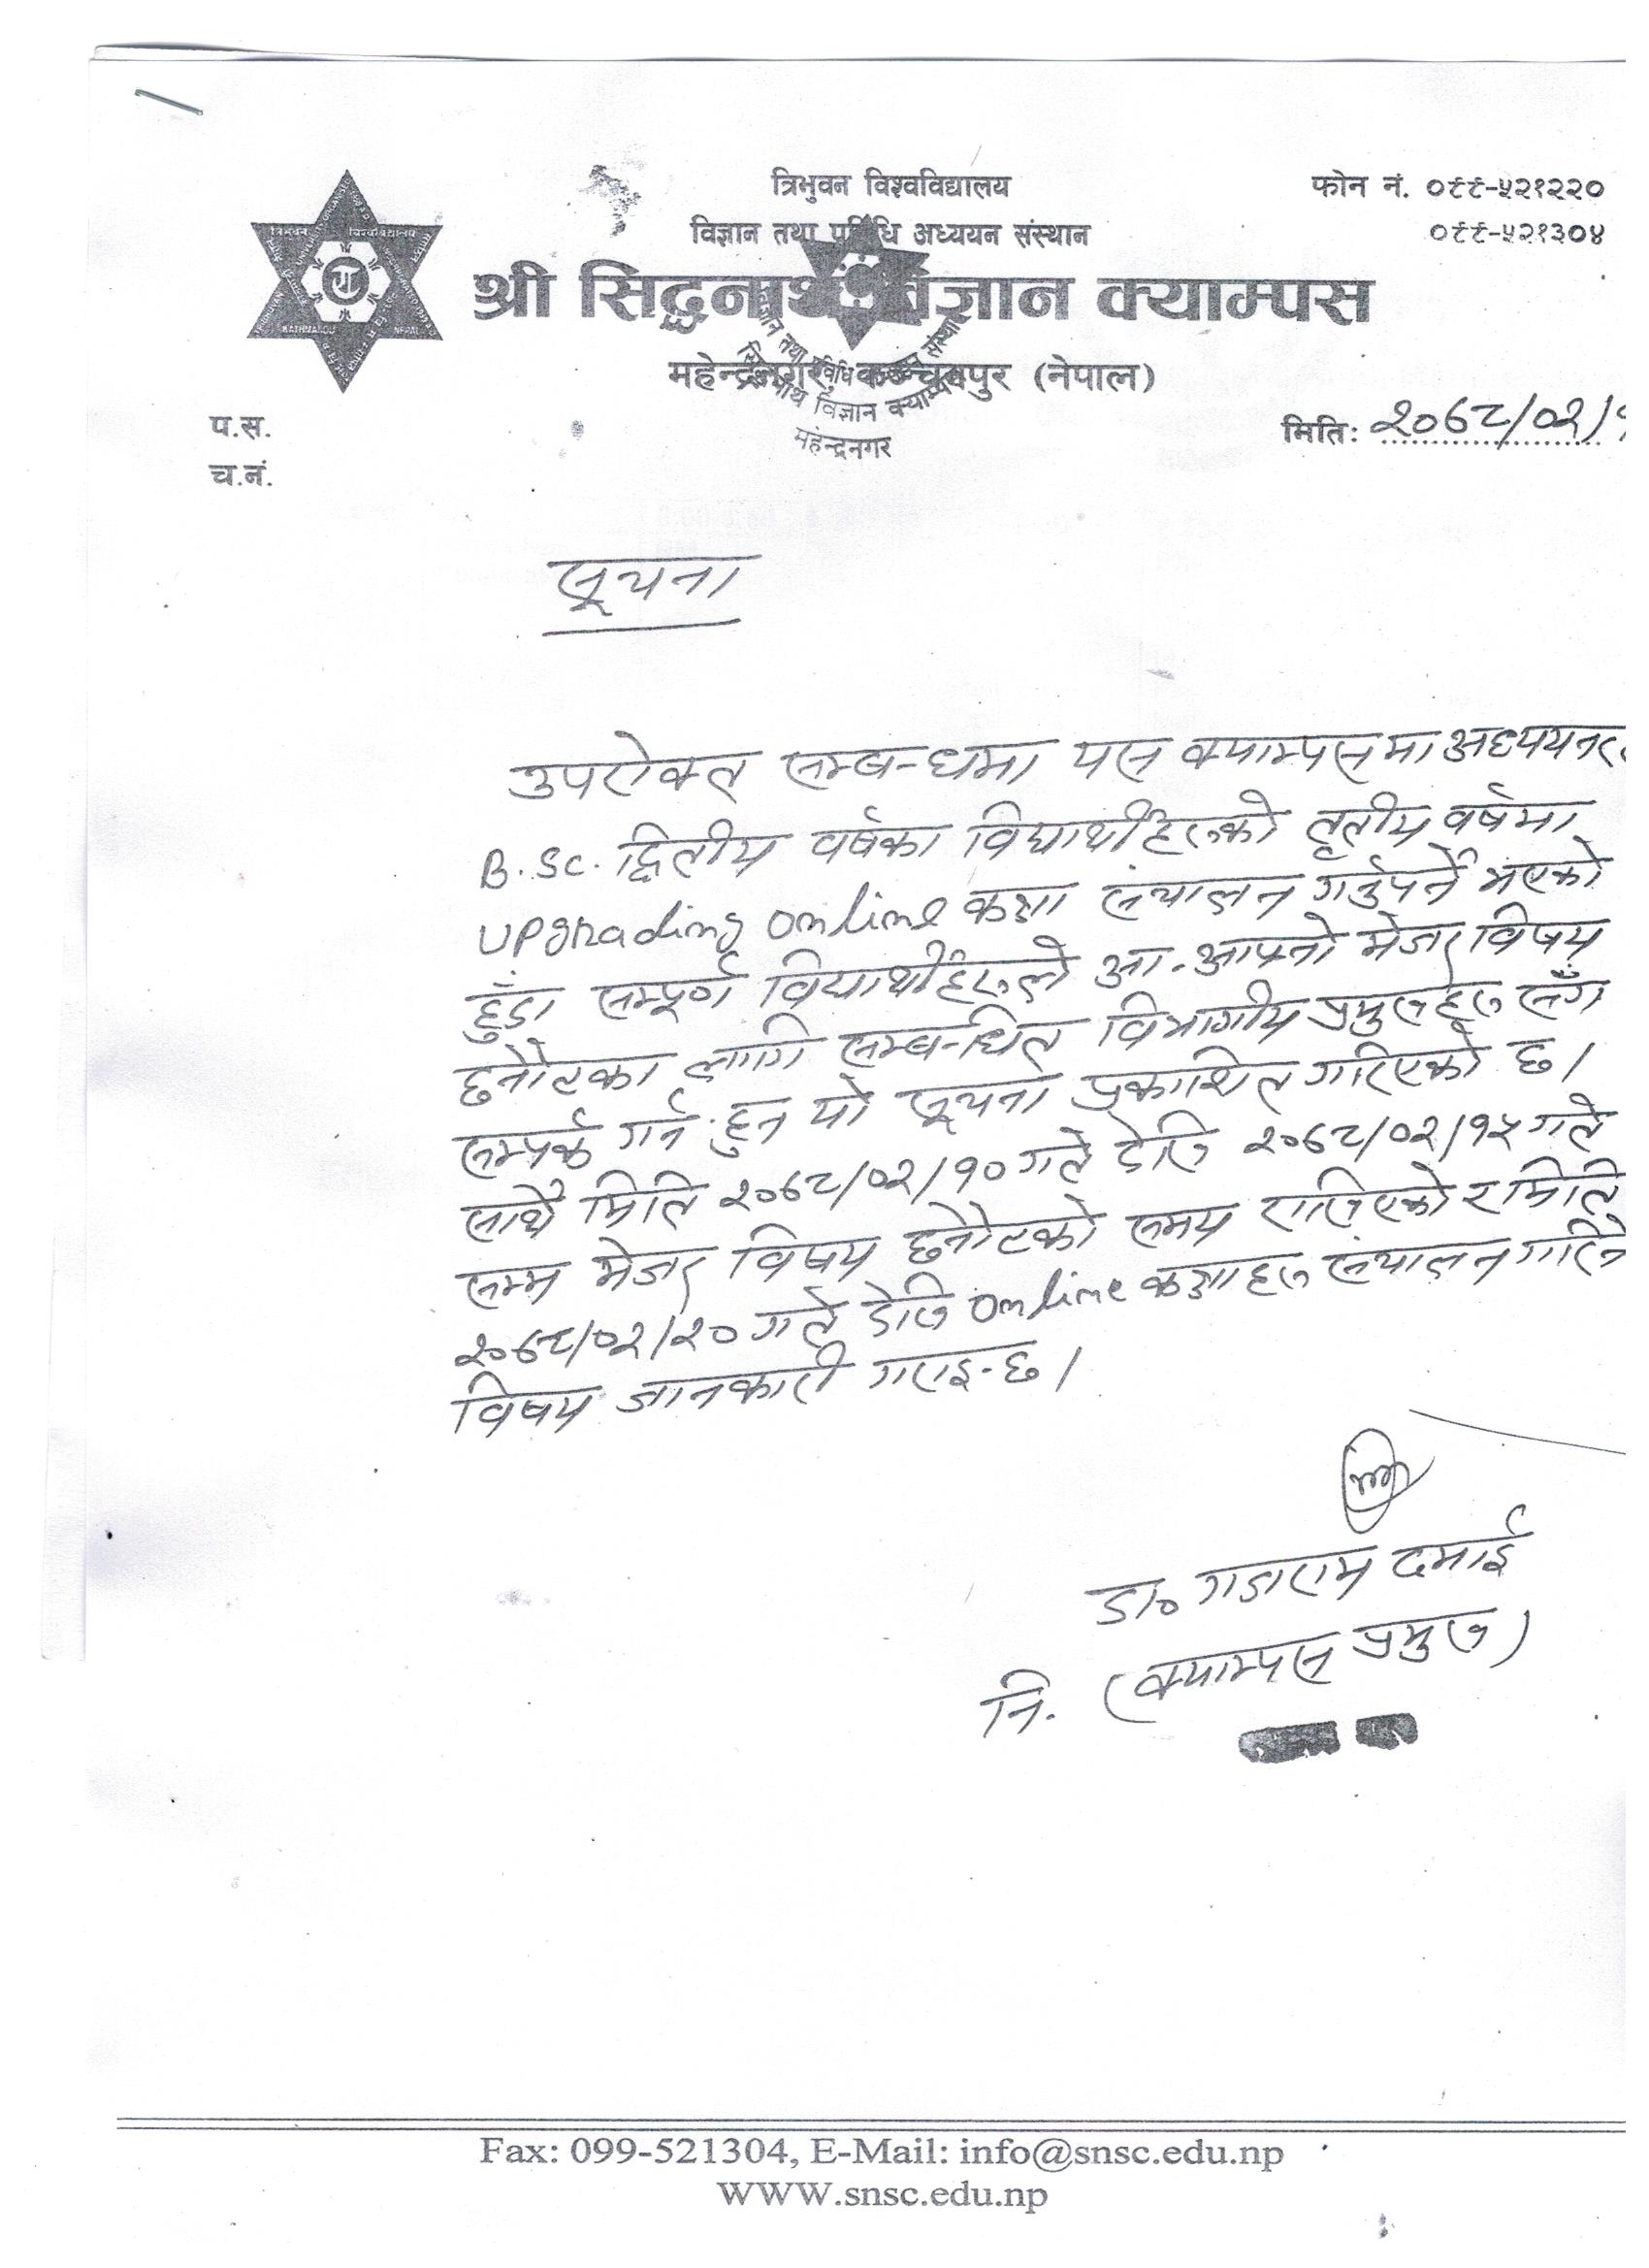 त्रिभुवन विश्वविद्यालय
विज्ञान तथा प्रविधि अध्ययन संस्थान
श्री सिद्धनाथ विज्ञान क्याम्पस
महेन्द्रनगर, कञ्चनपुर (नेपाल)
फोन नं. ०९९-५२१२२०
०९९-५२१३०४
विज्ञान तथा प्रविधि अध्ययन संस्थान
सिद्धनाथ विज्ञान क्याम्पस
महेन्द्रनगर
प.स.
च.नं.
मिति: २०७८/०२/
सूचना
उपरोक्त सम्बन्धमा यस क्याम्पसमा अध्ययनरत
B.Sc. द्वितीय वर्षका विद्यार्थीहरुको तृतीय वर्षमा
upgrading online कक्षा संचालन गर्नुपर्ने भएको
हुँदा सम्पूर्ण विद्यार्थीहरुले आ-आफ्नो मेजर विषय
छनौटका लागि सम्बन्धित विभागीय प्रमुखहरु सँग
सम्पर्क गर्न हुन यो सूचना प्रकाशित गरिएको छ।
साथै मिति २०७८/०२/१० गते देखि २०७८/०२/१५ गते
सम्म मेजर विषय छनौटको समय राखिएको र मिति
२०७८/०२/२० गते देखि online कक्षाहरु संचालन गरिने
विषय जानकारी गराइन्छ।
डा० गडाराम दमाई
नि. (क्याम्पस प्रमुख)
Fax: 099-521304, E-Mail: info@snsc.edu.np
WWW.snsc.edu.np